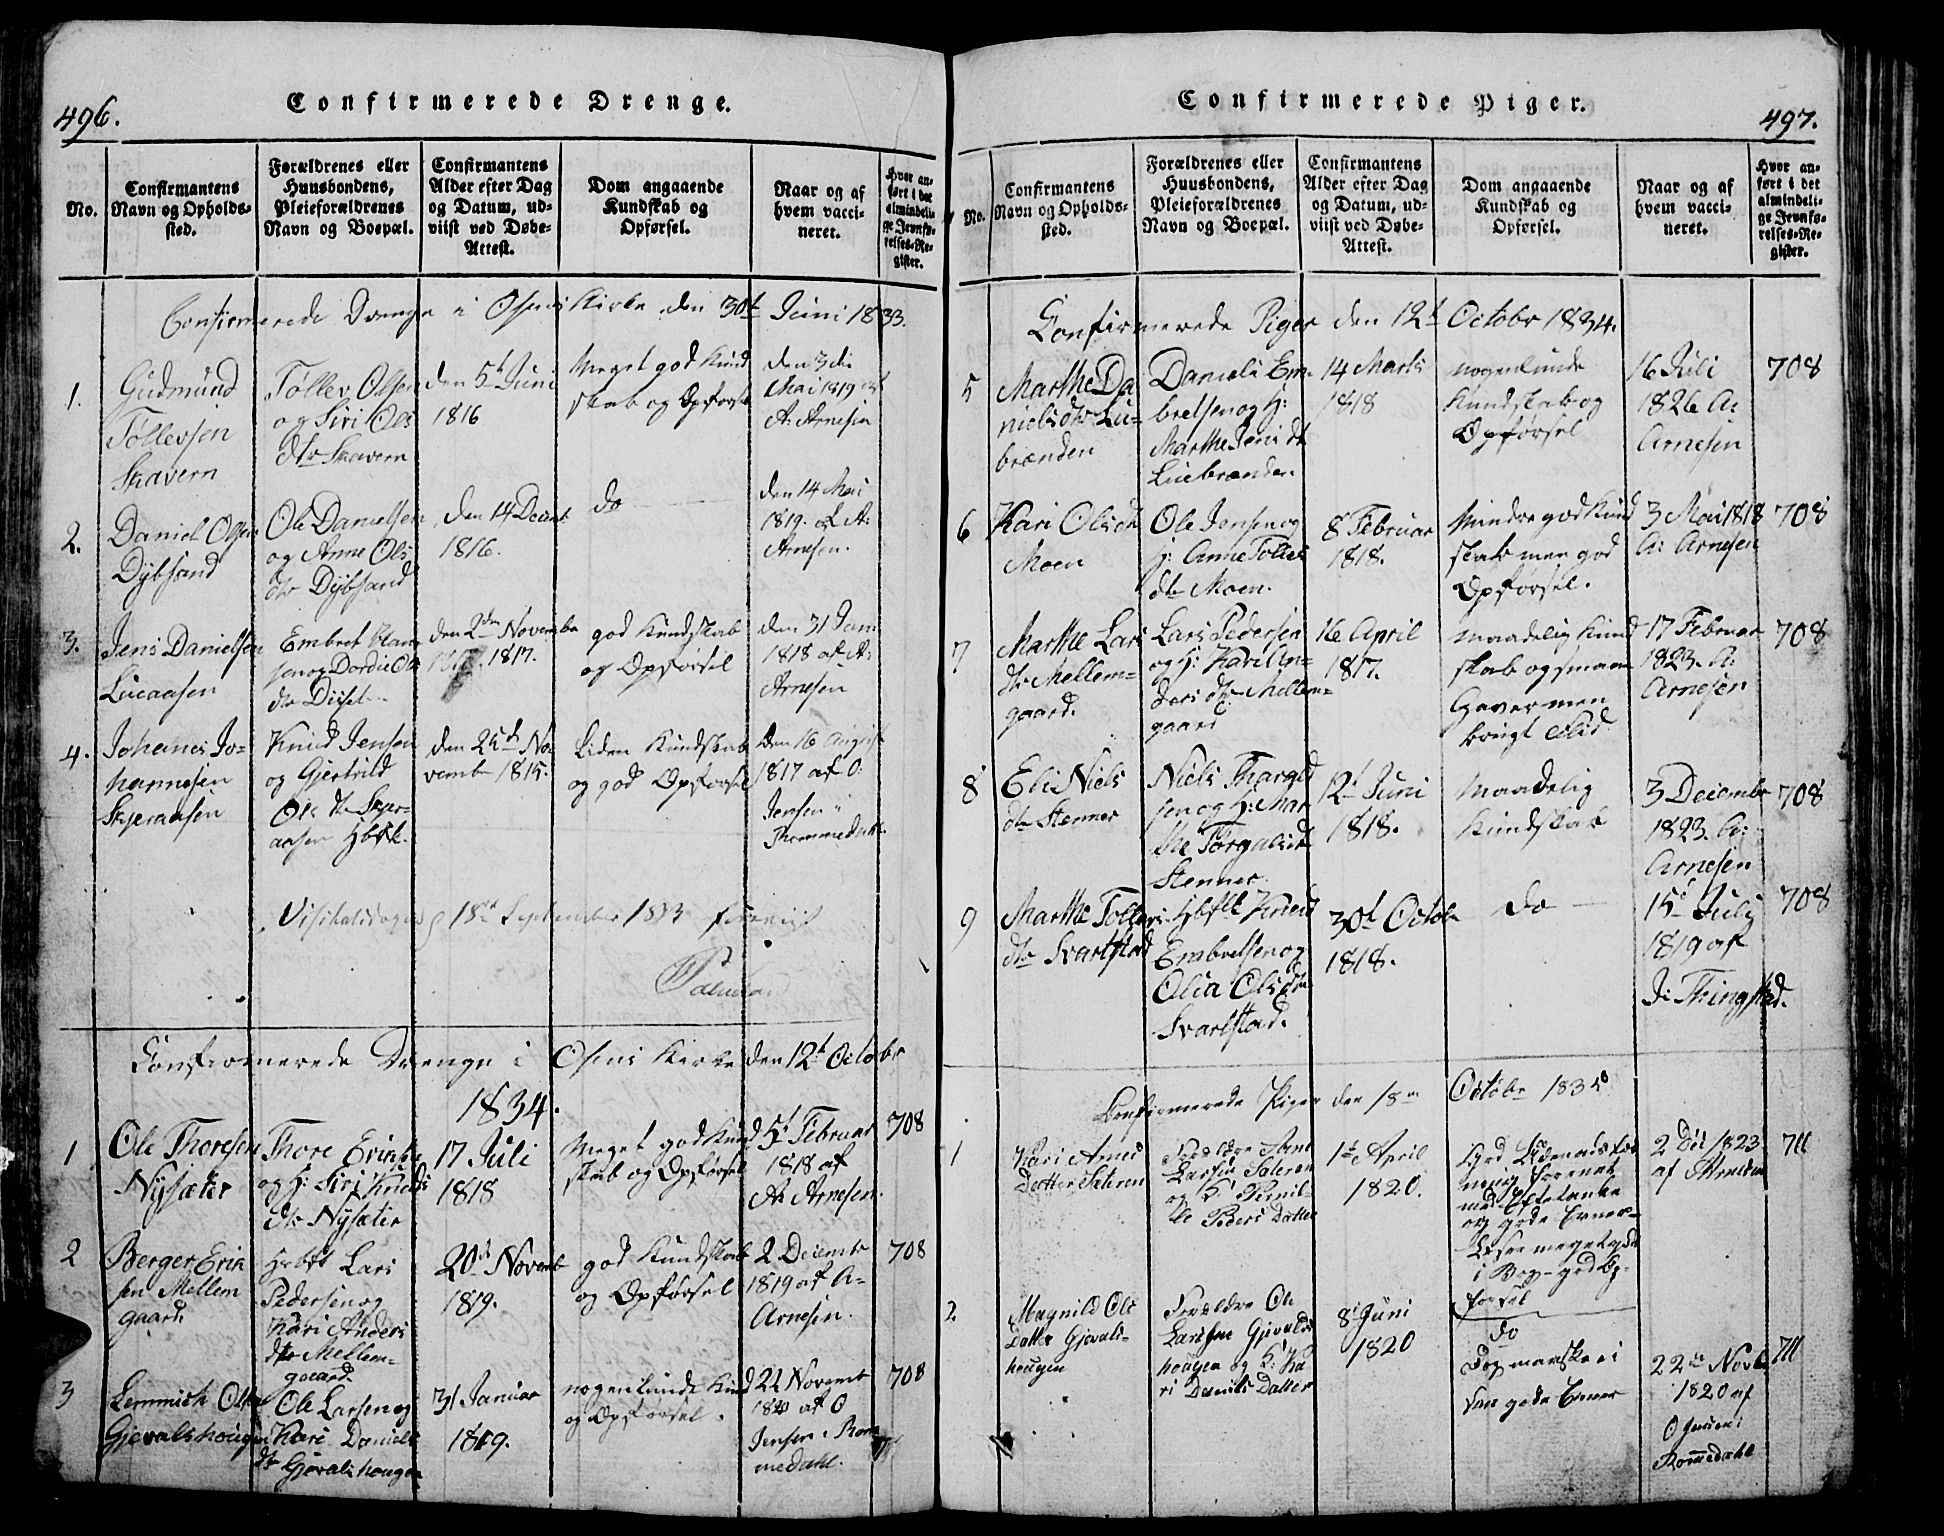 496.
Confirmerede Drenge.
No.
Confirmantens
Navn og Opholds-
sted.
Forældrenes eller
Huusbondens,
Pleieforældrenes
Navn og Boepæl.
Confirmantens
Alder efter Dag
og Datum, ud-
viist ved Døbe-
Attest.
Dom angaaende
Kundskab og
Opførsel.
Naar og af
hvem vacci-
neret.
Hvor an-
ført i det
almindeli-
ge Jevnfø-
relses-Re-
gister.
Confirmerede Drenge i Osens Kirke den 30t Juni 1833.
1.
Gudmund
Tollevsen
Skavern
Tollev Olsen
og Siri Ols
dtr Skavern
den 5t Juni
1816
Meget god Kund
skab og Opførsel
den 3die
Mai 1819 af
A: Arnesen
2.
Daniel Olsen
Dybsand
Ole Danielsen
og Anne Ols
dtr Dybsand
den 14 Decemb
1816.
do
den 14 Mai
1819. af A:
Arnesen.
3.
Jens Danielsen
Lucaasen
Embret
og Dordie Ols
dtr
den 2den Novembr
1817.
god Kundskab
og Opførsel
den 31 Jan:
1818 af A:
Arnesen
4.
Johanes Jo-
hannesen
Skjeraasen
Knud Jensen
og Gjertrild
Ols dtr Skjer-
aasen Hbflk.
den 25d No-
vembr 1815.
Liden Kundskab
og god Opførsel
den 16 August
1817 af O:
Jensen
Rommedahl.
Visitatsdagen 18de September 1833
Confirmerede Drenge i Osens Kirke den 12t Octobr
1834.
1
Ole Thoresen
Nysæter
Thore Eriks
og H: Siri Knuds
dtr Nysæter
17 Juli
1818
Meget god Kund
skab og Opførsel
5t Februar
1818 af
A: Arnesen.
708
2
Berger Erik
sen Mellem
gaard.
Hbflk Lars
Pedersen og
Kari Anders
dtr Mellem-
gaard.
20d Novemb
1819.
god Kundskab
og Opførsel
2 Decembr
1819 af A-
Arnesen.
708
3
Lemmich Olsen
Gjevalshougen
Ole Larsen og
Kari Daniels
dtr Gjevalshougen
31 Januar
1819.
nogenlunde Kund
og Opførsel.
22 Novemb
1820 af O
Jensen i Rom
medahl.
708
497.
Confirmerede Piger.
No.
Confirmantens
Navn og Opholds-
sted.
Forældrenes eller
Huusbondens,
Pleieforældrenes
Navn og Boepæl.
Confirmantens
Alder efter Dag
og Datum, ud-
viist ved Døbe-
Attest.
Dom angaaende
Kundskab og
Opførsel.
Naar og af
hvem vacci-
neret.
Hvor an-
ført i det
almindeli-
ge Jevnfø-
relses-Re-
gister.
Confirmerede Piger den 12t Octobr 1834.
5
Marthe Da
nielsdtr Lu-
brænden
Daniels Em-
bretsen og H:
Marthe Jens dt
Luebrænden
14 Marts
1818
nogenlunde
Kundskab og
Opførsel
16 Juli
1826 A:
Arnesen
708
6
Kari Olsdtr
Moen
Ole Jensen og
H: Anne Tollefs
dtr Moen.
8 Februar
1818.
Mindre god Kund
skab men god
Opførsel.
3 Mai 1818
A: Arnesen
708
7
Marthe Lars
dtr Mellem-
gaard.
Lars Pedersen
og H: Kari
dtr Mellem-
gaard
16 April
1817.
maadelig Kund
skab og smaae
Gaver men
brugt Flid
17 Februar
1823. A:
Arnesen
708
8
Eli Niels
dtr Stenner
Niels Thorgils
sen og H: Mar
the Torgalsdtr
Stenner.
12t Juni
1818.
Maadelig
Kundskab
3 Decembr
1823. A:
Arnesen
708
9
Marthe Tollevs
dtr Svartstad
Hbflk Knud
Embretsen og
Olia Olsdtr
Svartstad.
30t Octobr
1818.
do
15d July
1819 af
J: Thingstad.
708
Confirmerede Piger den 18de October 1835
1
Kari Arnes
Datter Sæteren
Forældre Arne
Larsen Sæteren
og K: Pernil-
le Peders Datter
1ste April
1820.
forenet
med Eftertanke
og gode Evner-
Læser meget godt
i Bog- god Op-
førsel
2 Dec 1823
af Arnesen
711
2
Magnild Ols
Datter Gjevals-
hougen
Forældre Ole
Larsen Gjevals
hougen og K: Ka
ri Daniels Datter
8de Juni
1820
do
dog mærkes ei
saa gode Evner
22de Novb
1820 af
O Jensen i
Rommedahl
711